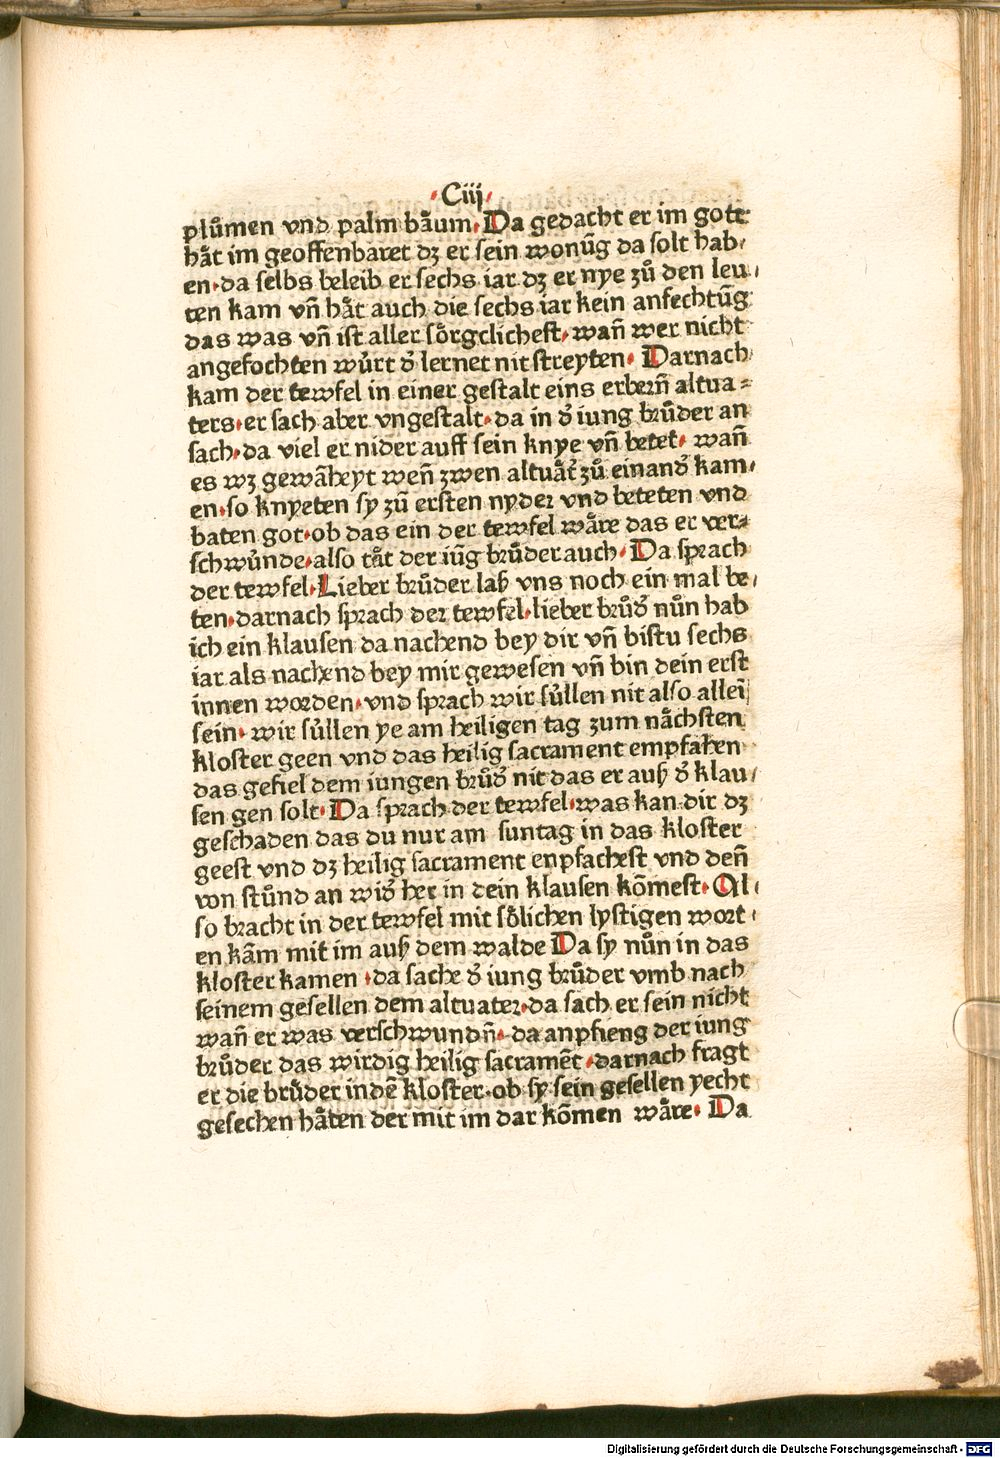 ·Ciij·
plůmen vnd palm båum·Da gedacht er im gott
håt im geoffenbaret dz er sein wonūg da solt hab/
en·da selbs beleib er sechs iar dz er nye zů den leu/
ten kam vñ håt auch die sechs iar kein anfechtūg
das was vñ ist aller sörgclichest·wañ wer nicht
angefochten würt d᷑ lernet nit streyten· Darnach
kam der tewfel in einer gestalt eins erberñ altua⸗
ters·er sach aber vngestalt·da in d᷑ iung brůder an
sach·da viel er nider auff sein knye vñ betet· wañ
es wz gewāheyt weñ zwen altuåt᷑ zů einand᷑ kam/
en·so knyeten sy zů ersten nyder vnd beteten vnd
baten got·ob das ein der tewfel wåre das er ver⸗
schwůnde·also tåt der iūg brůder auch·Da sprach
der tewfel·Lieber brůder laß vns noch ein mal be/
ten·darnach sprach der tewfel·lieber brůd᷑ nůn hab
ich ein klausen da nachend bey dir vñ bistu sechs
iar als nachend bey mir gewesen vñ bin dein erst
innen worden·vnd sprach wir süllen nit also alleī
sein· wir süllen ye am heiligen tag zum nåchsten
kloster geen vnd das heilig sacrament empfahen
das gefiel dem iungen brůd᷑ nit das er auß d᷑ klau/
sen gen solt·Da sprach der tewfel·was kan dir dz
geschaden das du nur am suntag in das kloster
geest vnd dz heilig sacrament enpfachest vnd deñ
von stůnd an wid᷑ her in dein klausen kōmest·Al/
so bracht in der tewfel mit sölichen lystigen wort/
en kām mit im auß dem walde Da sy nůn in das
kloster kamen ·da sache d᷑ iung brůder vmb nach
seinem gesellen dem altuater·da sach er sein nicht
wañ er was verschwundñ·da anpfieng der iung
brůder das wirdig heilig sacramēt ·darnach fragt
er die brůder indē kloster·ob sy sein gesellen yecht
gesechen håten der mit im dar kōmen wåre· Da
Digitalisierung gefördert durch die Deutsche Forschungsgemeinschaft - DFG